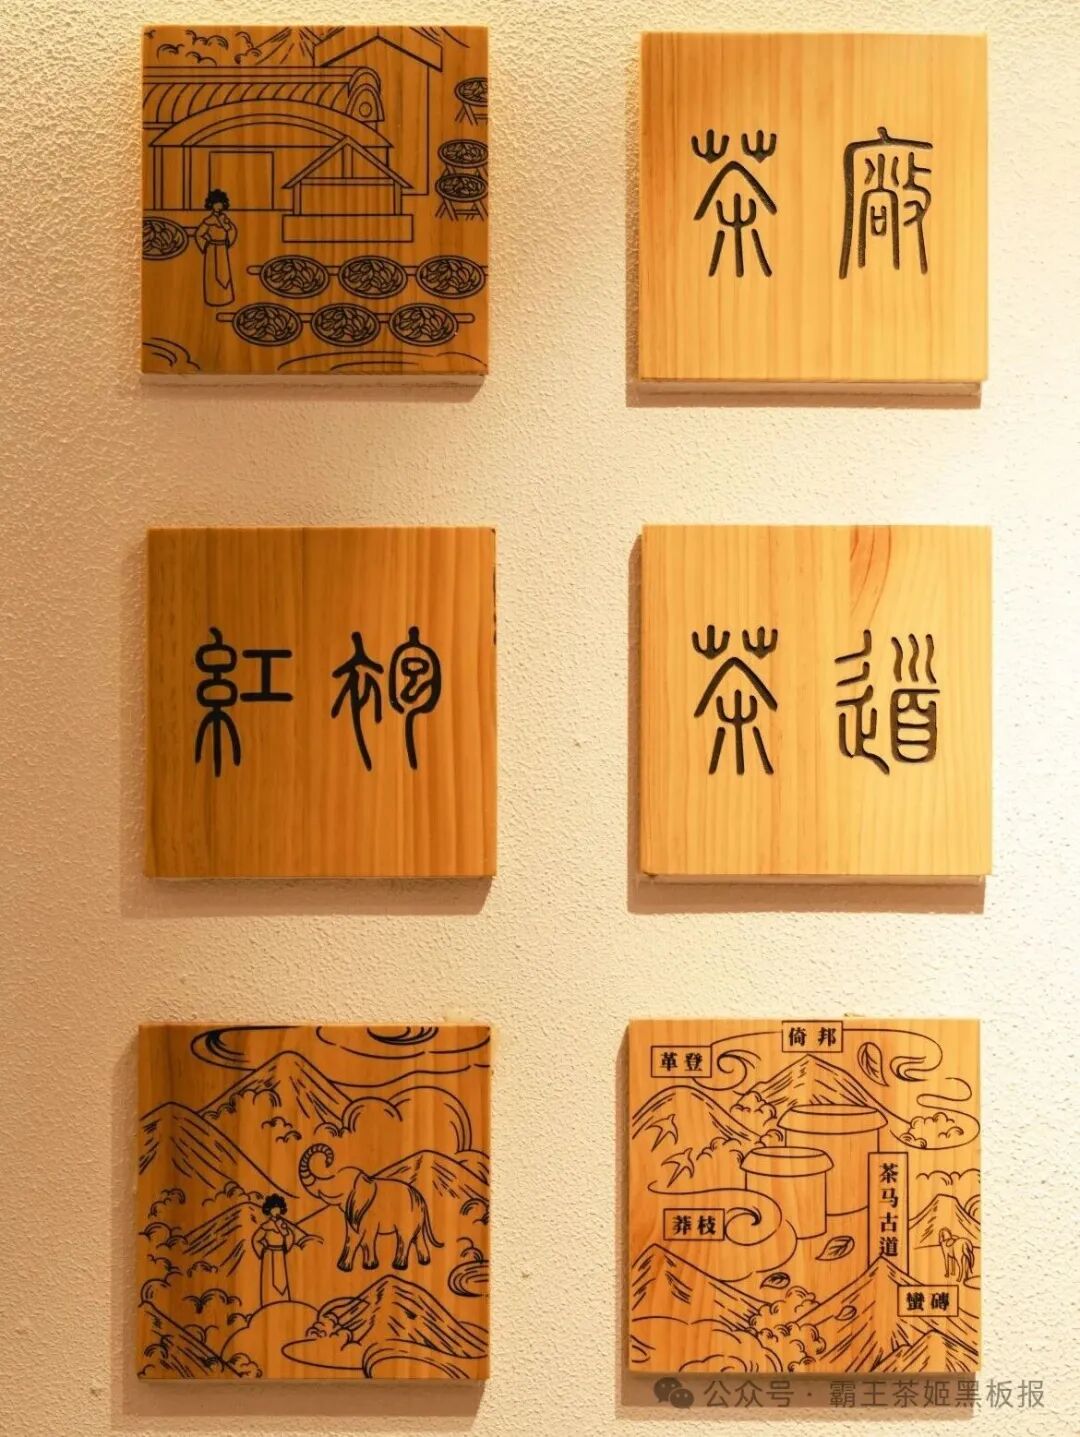 茶廠
紅袍
茶道
革登
倚邦
莽枝
茶马古道
蠻磚
公众号·霸王茶姬黑板报